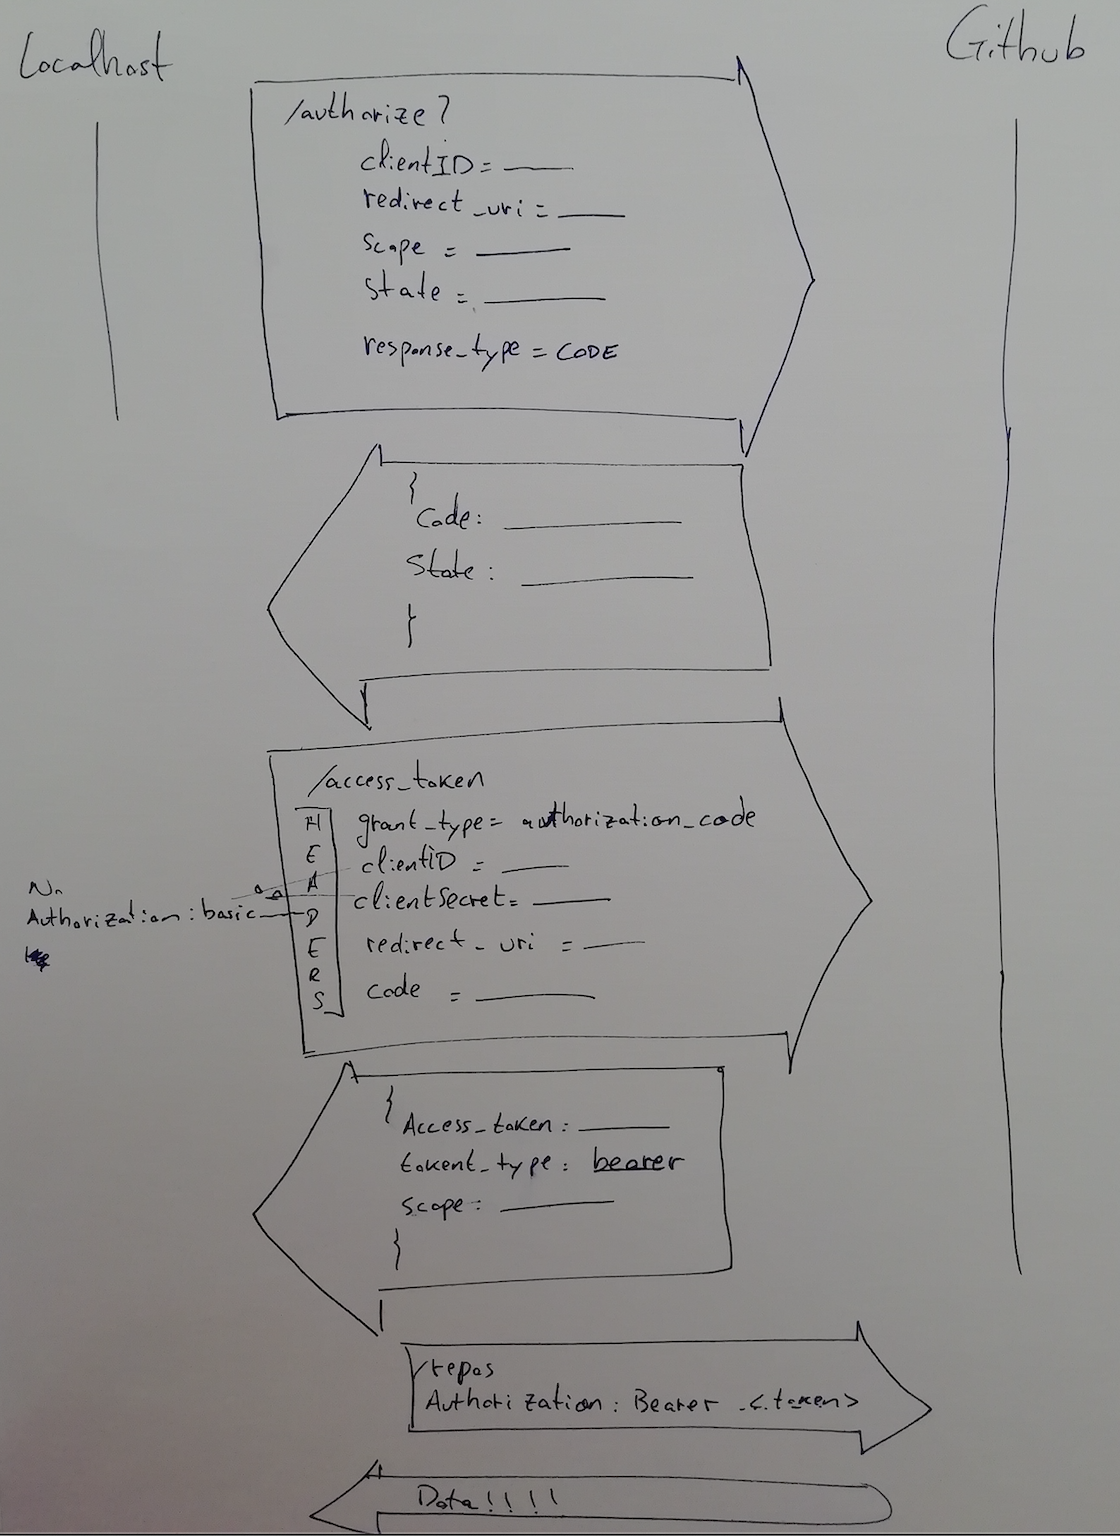 Localhost
Github
/authorize?
clientID = ____
redirect_uri = ____
scope = ____
state = ____
response_type = CODE
{
Code: ____
State: ____
}
/access_token
HEADERS
grant_type= authorization_code
clientID = ____
clientSecret= ____
redirect_uri = ____
code = ____
Authorization: basic
{
Access_token: ____
tokent_type: bearer
scope: ____
}
/repos
Authorization: Bearer <token>
Data!!!!